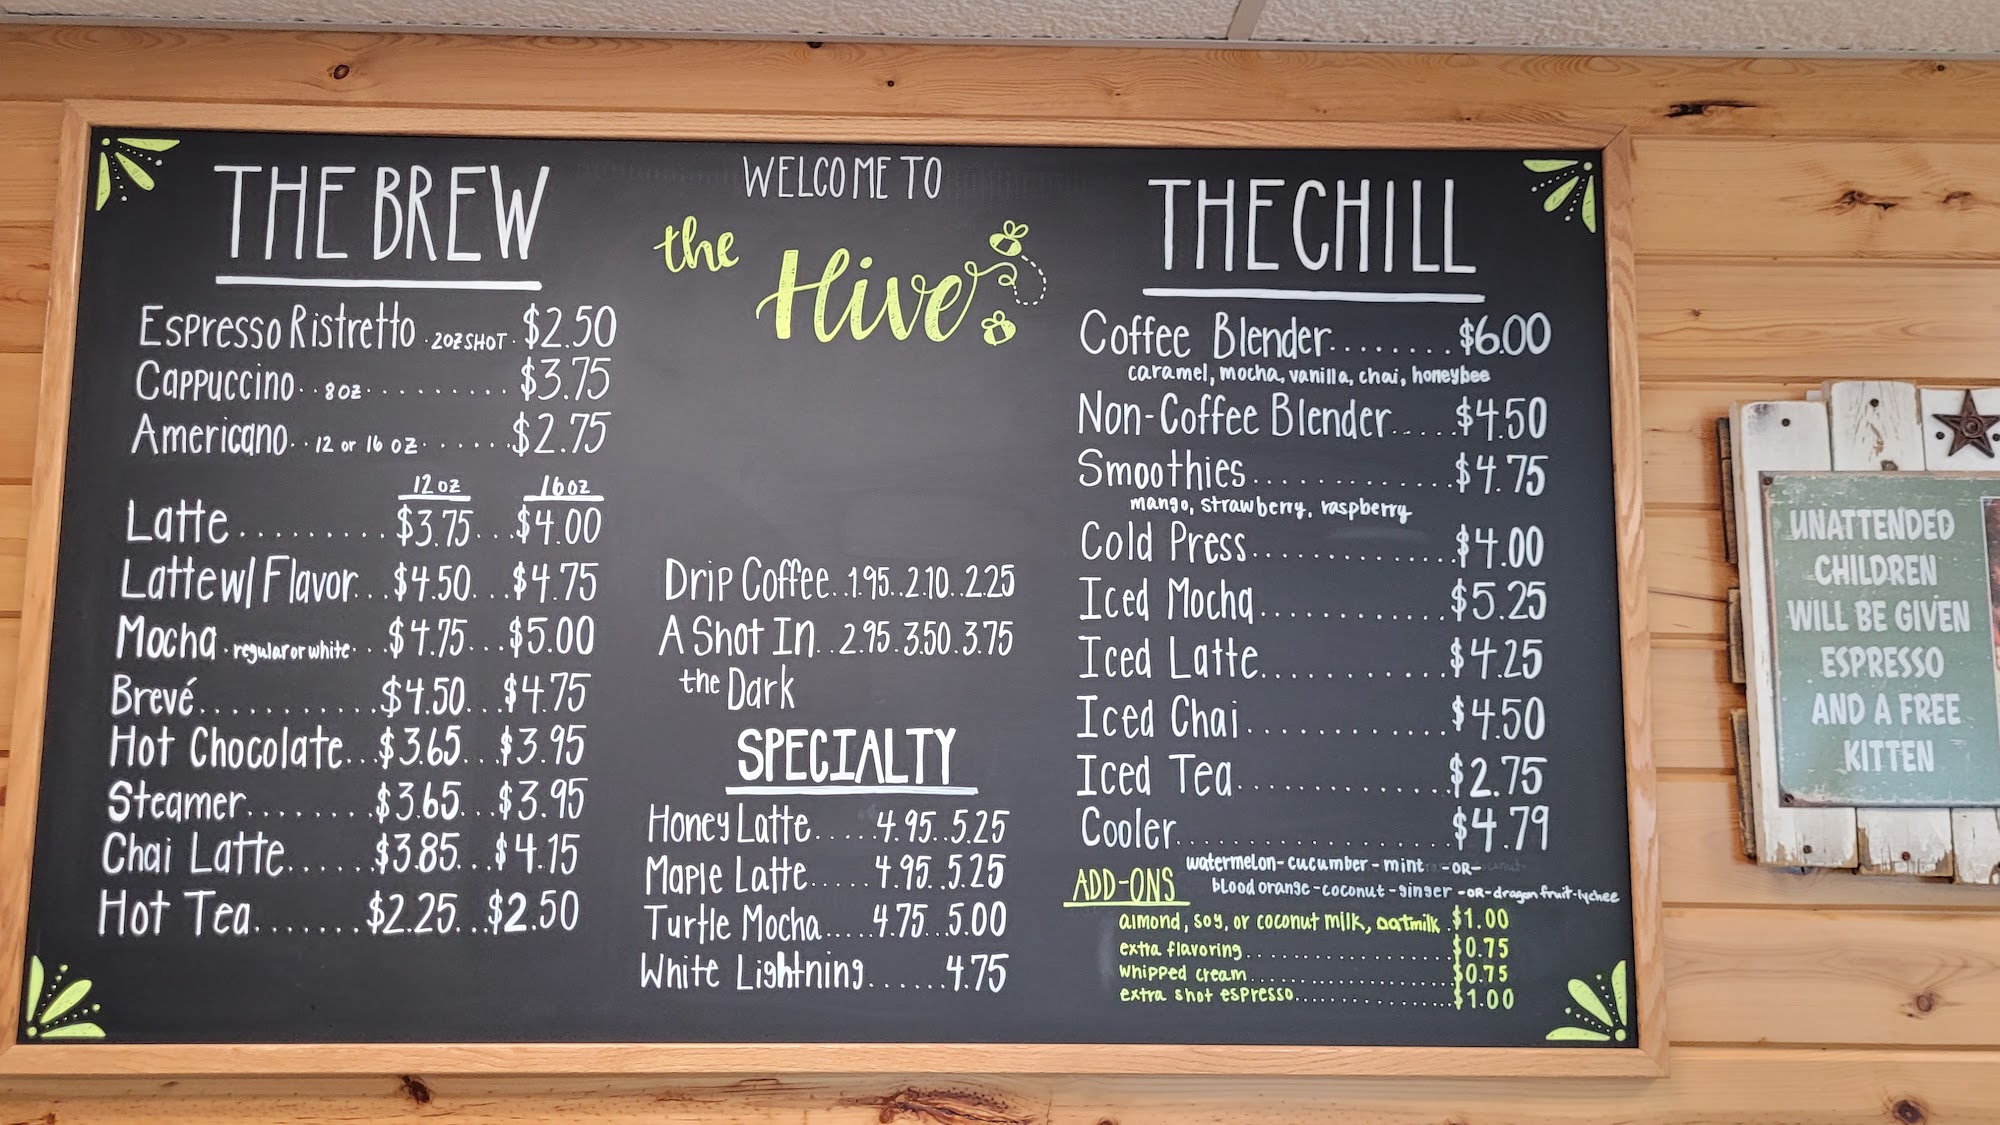 THE BREW
Espresso Ristretto . 2OZ SHOT . $2.50
Cappuccino .. 8oz ......... $3.75
Americano .. 12 or 16 oz ...... $2.75
12oz 16oz
Latte ......... $3.75 ... $4.00
Latte w/ Flavor ... $4.50 ... $4.75
Mocha . regular or white ... $4.75 ... $5.00
Brevé .......... $4.50 ... $4.75
Hot Chocolate ... $3.65 ... $3.95
Steamer ........ $3.65 ... $3.95
Chai Latte ...... $3.85 ... $4.15
Hot Tea ....... $2.25 ... $2.50
WELCOME TO
the Hive
Drip Coffee .. 1.95 .. 2.10 .. 2.25
A Shot In .. 2.95 . 3.50 . 3.75
the Dark
SPECIALTY
Honey Latte ..... 4.95 .. 5.25
Maple Latte ..... 4.95 .. 5.25
Turtle Mocha ..... 4.75 ... 5.00
White Lightning ...... 4.75
THE CHILL
Coffee Blender ........ $6.00
caramel, mocha, vanilla, chai, honeybee
Non-Coffee Blender ..... $4.50
Smoothies ............. $4.75
mango, strawberry, raspberry
Cold Press ............. $4.00
Iced Mocha ............ $5.25
Iced Latte ............ $4.25
Iced Chai ............. $4.50
Iced Tea .............. $2.75
Cooler ................. $4.79
watermelon-cucumber-mint -OR-
blood orange-coconut-ginger -OR- dragon fruit-lychee
ADD-ONS
almond, soy, or coconut milk, oatmilk . $1.00
extra flavoring .................. $0.75
whipped cream .................. $0.75
extra shot espresso .............. $1.00
UNATTENDED
CHILDREN
WILL BE GIVEN
ESPRESSO
AND A FREE
KITTEN